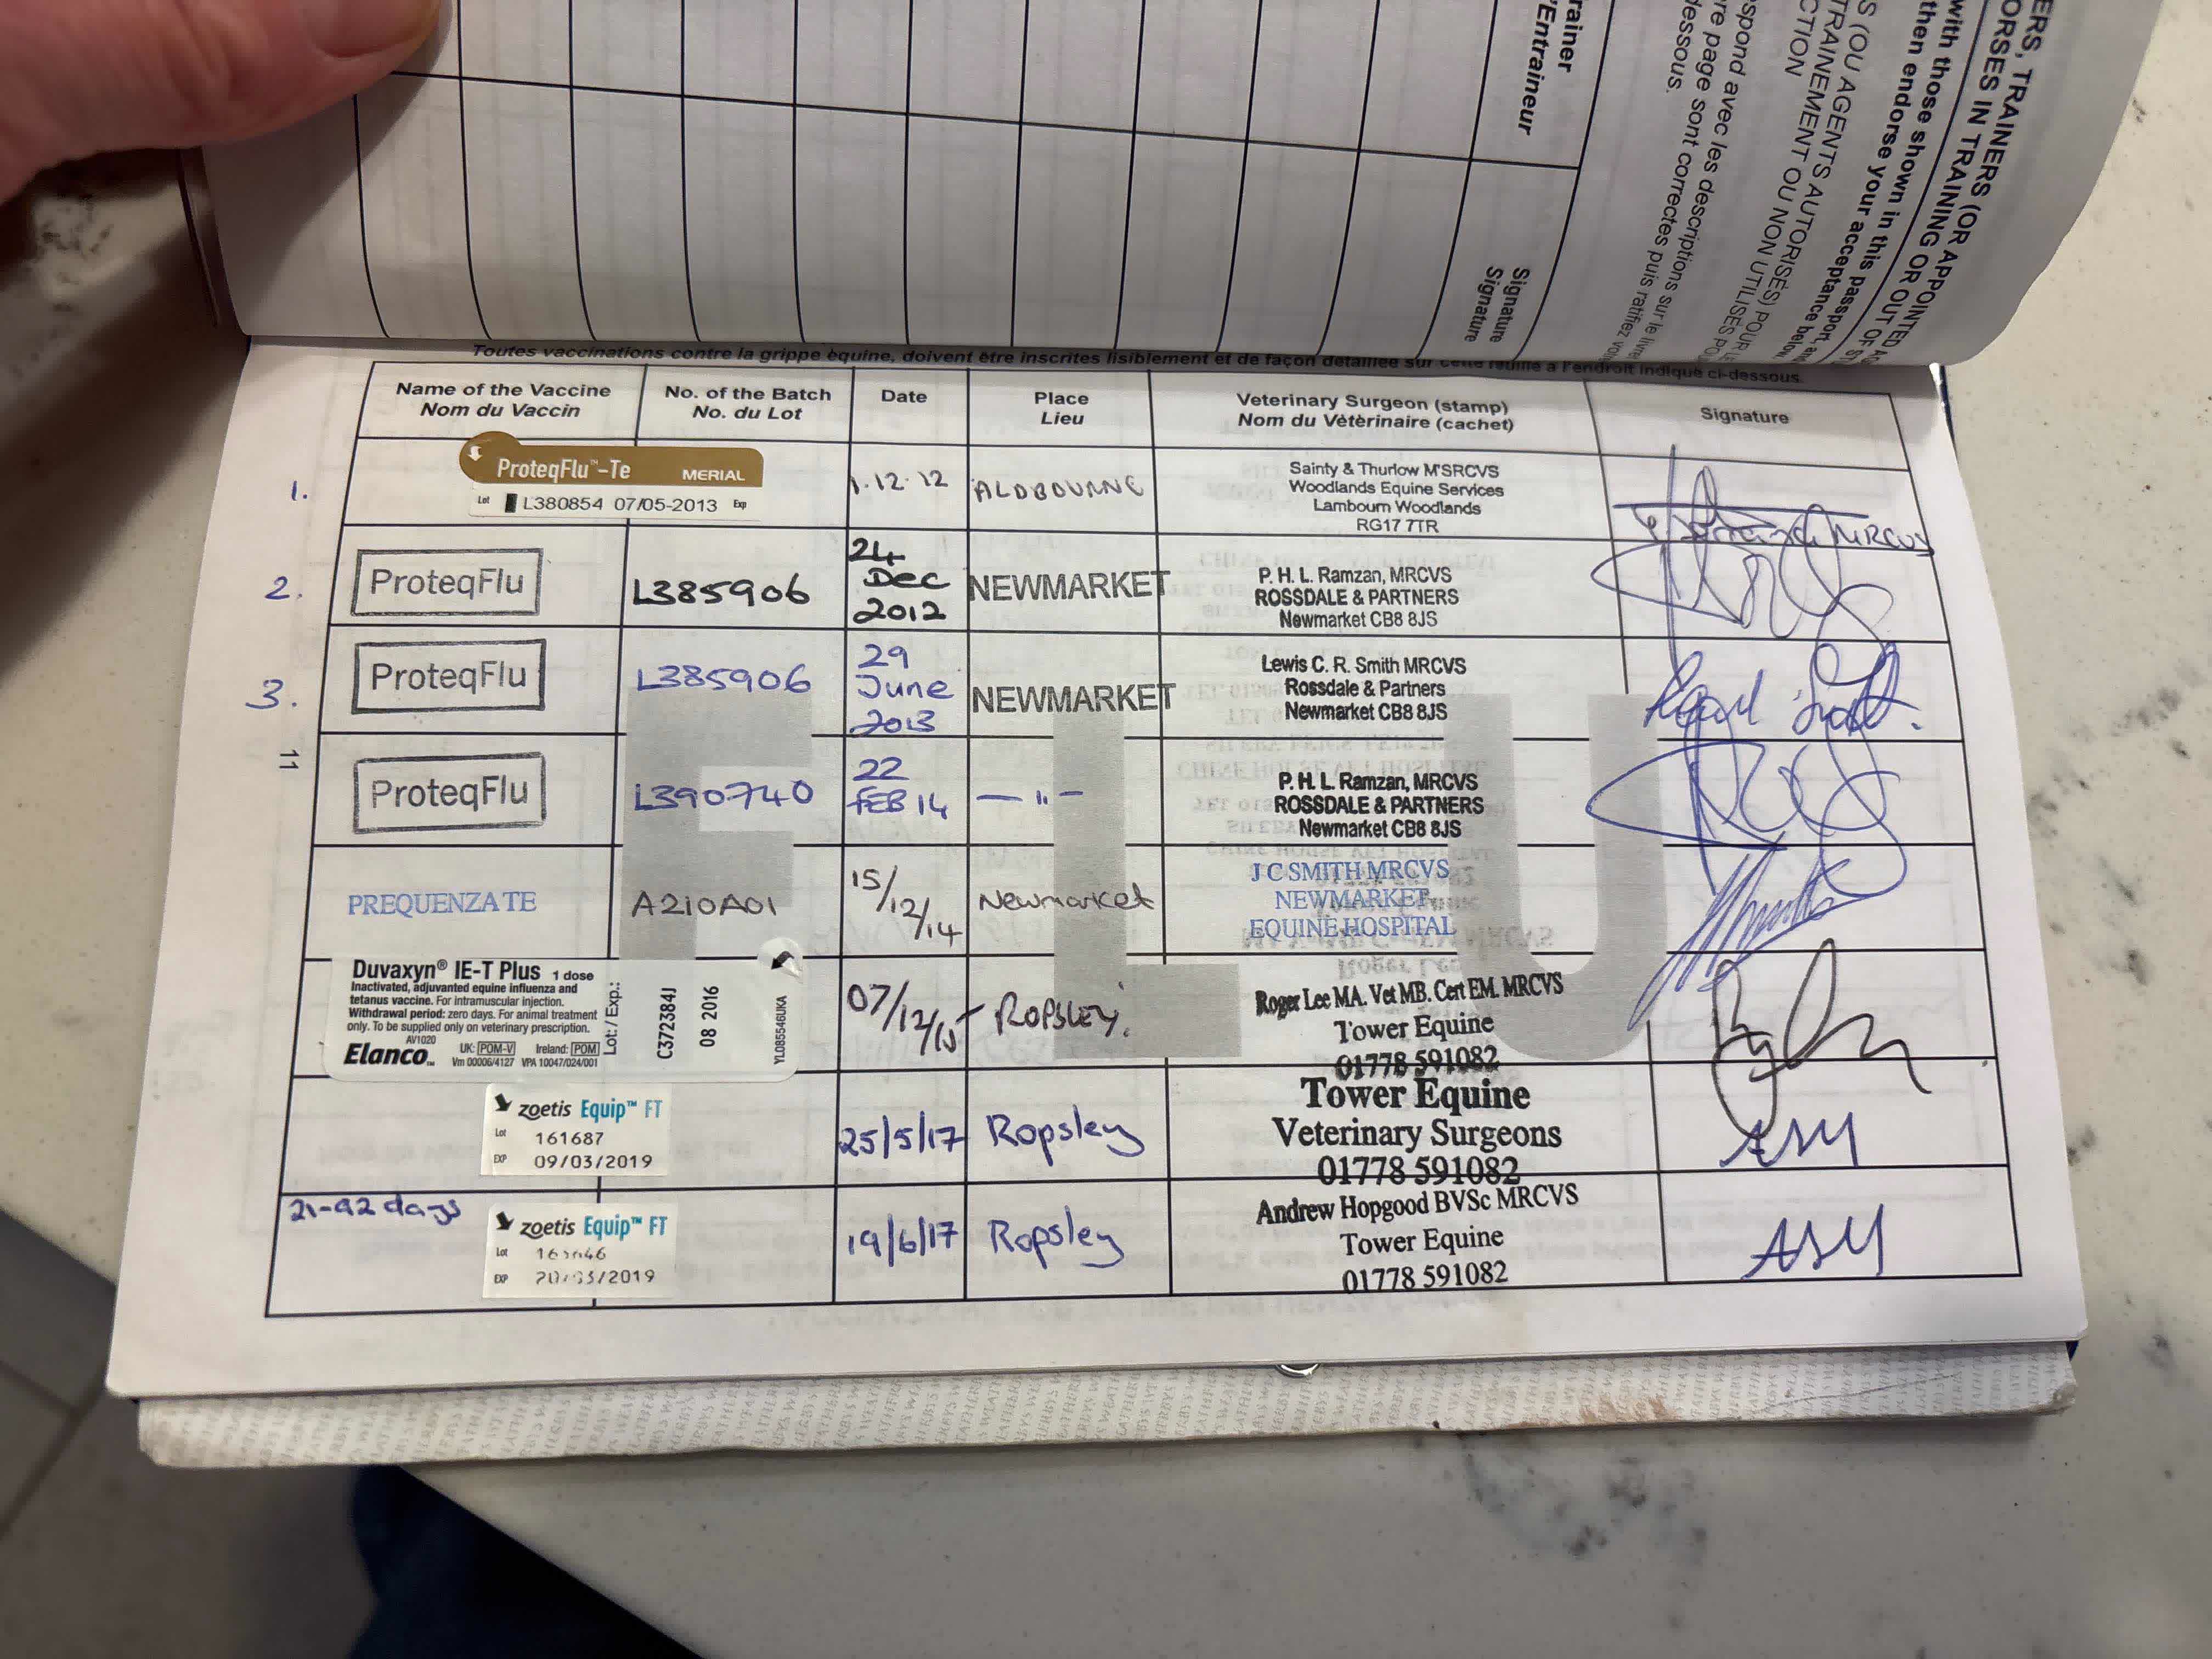 rainer
'Entraineur
Signature
Signature
ERS, TRAINERS (OR APPOINTED
ORSES IN TRAINING OR OUT OF
with those shown in this passport,
then endorse your acceptance below.
S (OU AGENTS AUTORISÉS) POUR
TRAINEMENT OU NON UTILISÉS
CTION
spond avec les descriptions sur le
re page sont correctes puis ratifiez
dessous.
Toutes vaccinations contre la grippe équine, doivent être inscrites lisiblement et de façon détaillée sur cette feuille à l'endroit indiqué ci-dessous.
Name of the Vaccine
Nom du Vaccin
No. of the Batch
No. du Lot
Date
Place
Lieu
Veterinary Surgeon (stamp)
Nom du Vétèrinaire (cachet)
Signature
FLU
1.
ProteqFlu™-Te MERIAL
Lot L380854 07/05-2013 Exp
1.12.12
ALDBOURNE
Sainty & Thurlow M'SRCVS
Woodlands Equine Services
Lambourn Woodlands
RG17 7TR
MRCVS
2.
ProteqFlu
L385906
24
Dec
2012
NEWMARKET
P. H. L. Ramzan, MRCVS
ROSSDALE & PARTNERS
Newmarket CB8 8JS
3.
ProteqFlu
L385906
29
June
2013
NEWMARKET
Lewis C. R. Smith MRCVS
Rossdale & Partners
Newmarket CB8 8JS
11
ProteqFlu
L390740
22
FEB 14
— " —
P. H. L. Ramzan, MRCVS
ROSSDALE & PARTNERS
Newmarket CB8 8JS
PREQUENZA TE
A210A01
15/12/14
Newmarket
J C SMITH MRCVS
NEWMARKET
EQUINE HOSPITAL
Duvaxyn® IE-T Plus 1 dose
Inactivated, adjuvanted equine influenza and
tetanus vaccine. For intramuscular injection.
Withdrawal period: zero days. For animal treatment
only. To be supplied only on veterinary prescription.
AV1020
Elanco™ UK: POM-V Ireland: POM
Vm 00006/4127 VPA 10047/024/001
Lot / Exp.:
C372384J
08 2016
YL085546UKA
07/12/15
ROPSLEY.
Roger Lee MA. Vet MB. Cert EM. MRCVS
Tower Equine
01778 591082
zoetis Equip™ FT
Lot 161687
EXP 09/03/2019
25/5/17
Ropsley
Tower Equine
Veterinary Surgeons
01778 591082
21-92 days
zoetis Equip™ FT
Lot
EXP
19/6/17
Ropsley
Andrew Hopgood BVSc MRCVS
Tower Equine
01778 591082